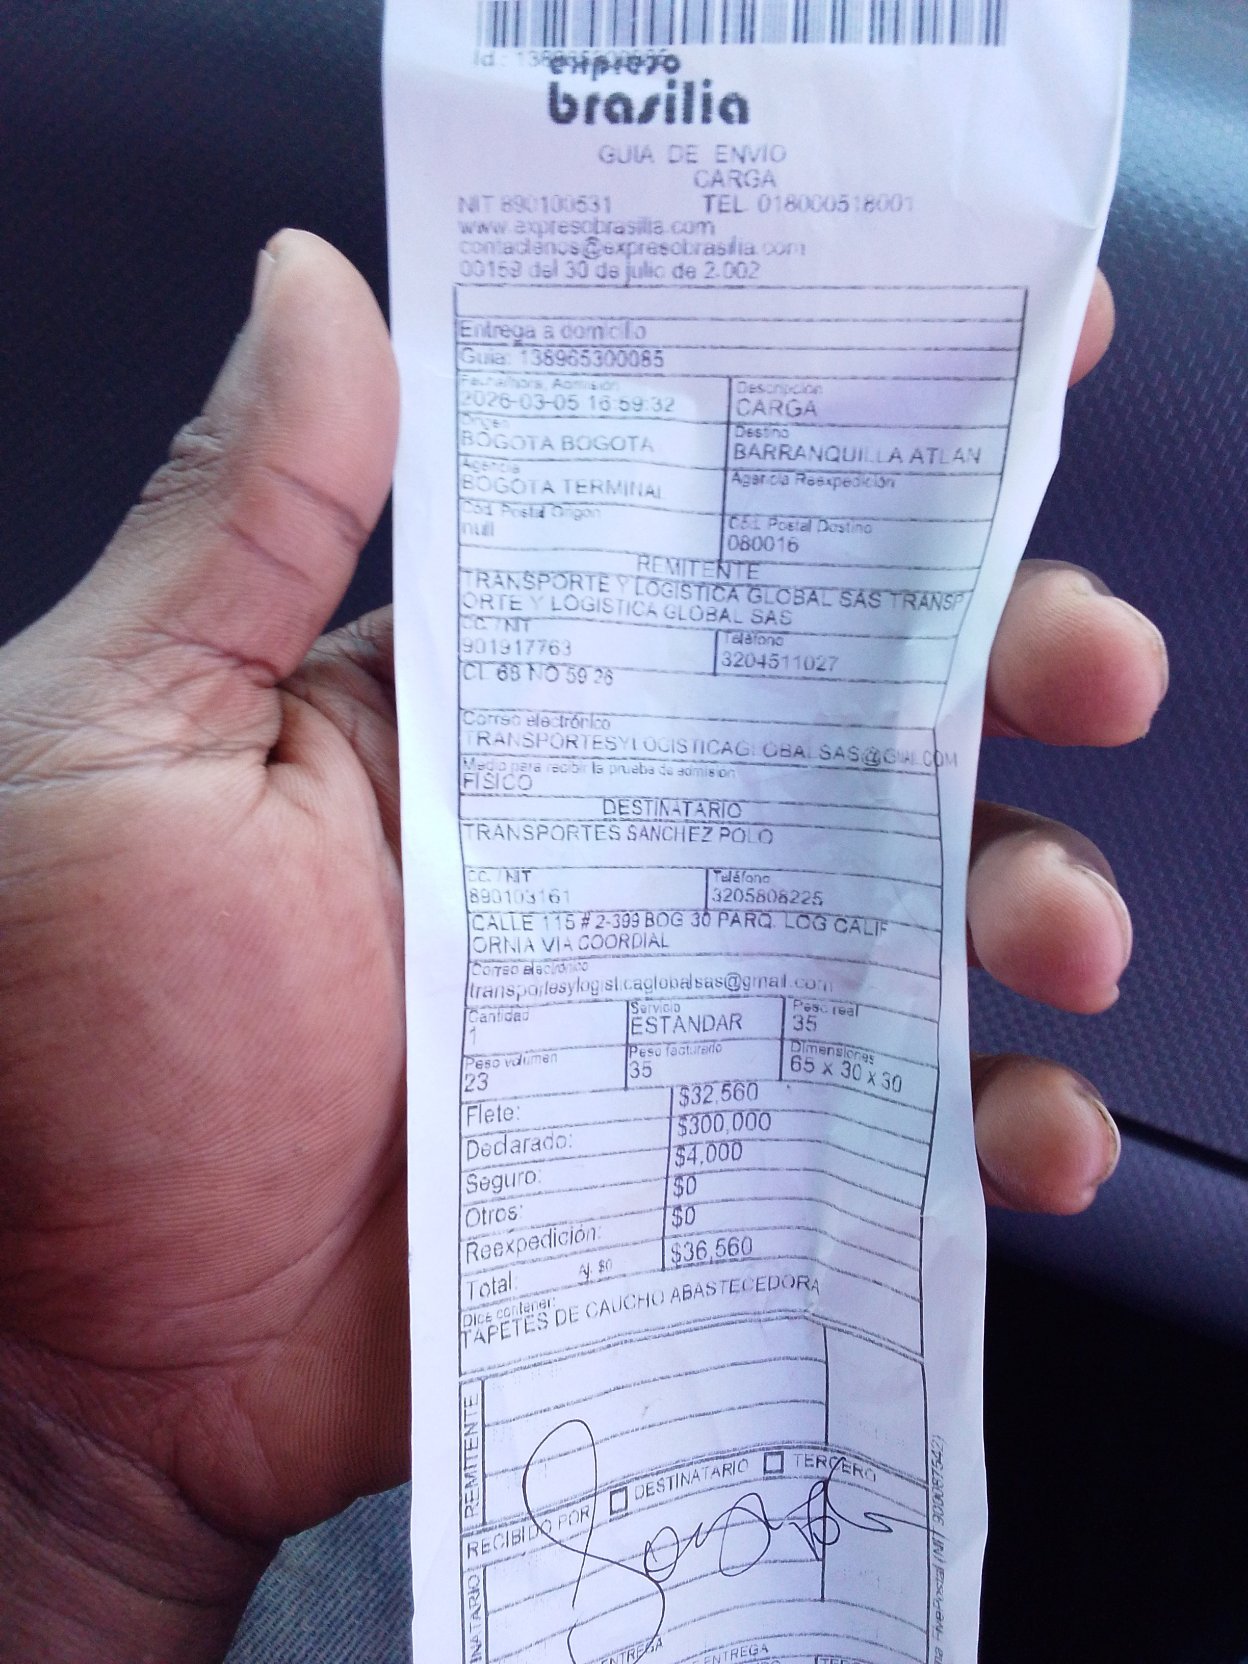 expreso
brasilia
GUIA DE ENVIO
CARGA
NIT 890100531 TEL 018000518001
www.expresobrasilia.com
contactenos@expresobrasilia.com
00159 del 30 de julio de 2.002
Entrega a domicilio
Guia: 138965300085
Fecha/hora Admisión Descripción
2026-03-05 16:59:32 CARGA
Origen Destino
BOGOTA BOGOTA BARRANQUILLA ATLAN
Agencia Agencia Reexpedición
BOGOTA TERMINAL
Cód. Postal Origen Cód. Postal Destino
null 080016
REMITENTE
TRANSPORTE Y LOGISTICA GLOBAL SAS TRANSP
ORTE Y LOGISTICA GLOBAL SAS
CC. / NIT Teléfono
901917763 3204511027
CL 68 NO 59 26
Correo electrónico
TRANSPORTESYLOGISTICAGLOBALSAS@GMAIL.COM
Medio para recibir la prueba de admision
FISICO
DESTINATARIO
TRANSPORTES SANCHEZ POLO
CC. / NIT Teléfono
890103161 3205808225
CALLE 115 # 2-399 BOG 30 PARQ. LOG CALIF
ORNIA VIA COORDIAL
Correo electrónico
transportesylogisticaglobalsas@gmail.com
Cantidad Servicio Peso real
1 ESTANDAR 35
Peso volumen Peso facturado Dimensiones
23 35 65 x 30 x 30
Flete: $32,560
Declarado: $300,000
Seguro: $4,000
Otros: $0
Reexpedición: $0
Total: Aj. $0 $36,560
Dice contener:
TAPETES DE CAUCHO ABASTECEDORA
REMITENTE
RECIBIDO POR DESTINATARIO TERCERO
ENTREGA
ENTREGA